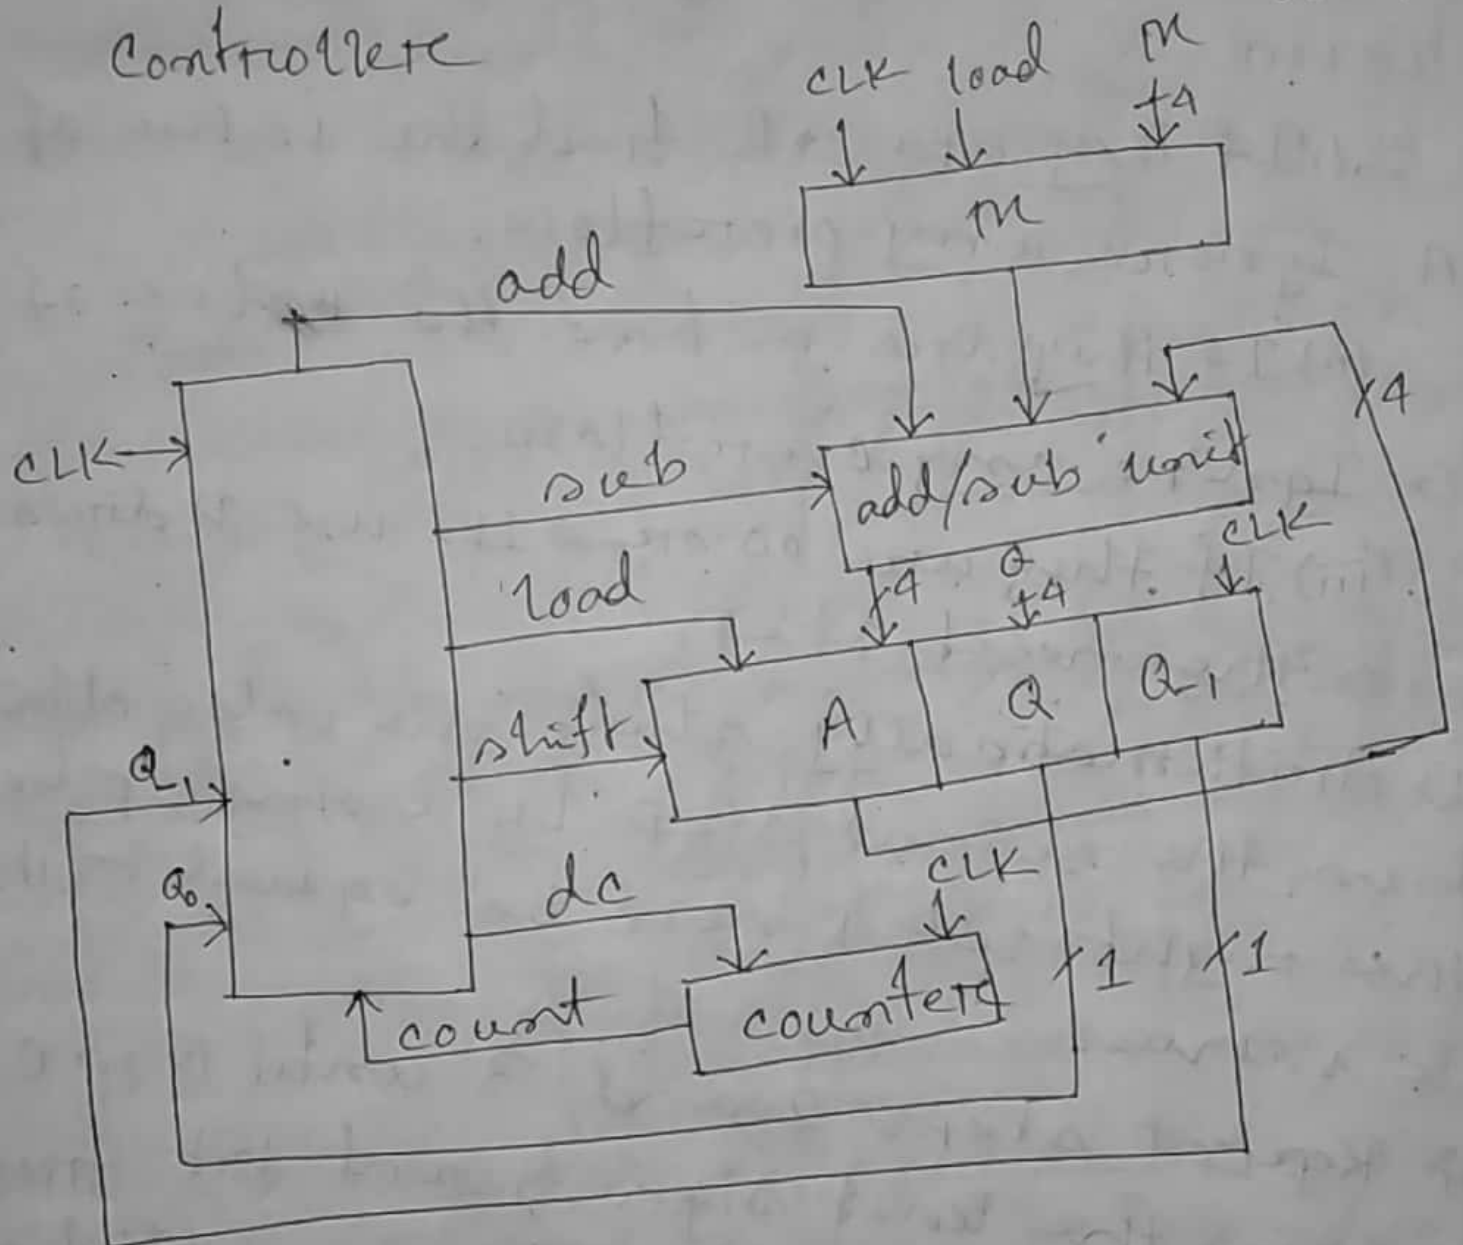 Controllere
CLK load M
4
M
add
4
CLK
sub
add/sub unit
CLK
load
4
Q
4
shift
A
Q
Q-1
Q-1
Q0
dc
CLK
1
1
count
countere